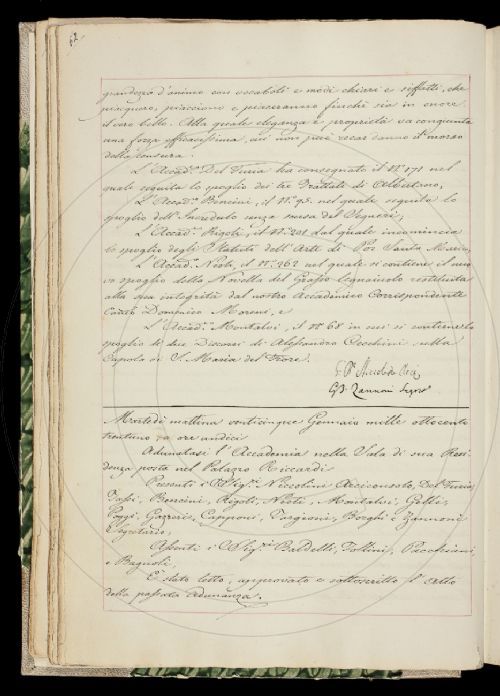 62
grandezza d'animo con vocaboli e modi chiari e siffatti, che
piacquero, piacciono e piaceranno finchè sia in onore
il vero bello. Alla quale eleganza e proprietà va congiunta
una forza efficacissima, cui non può recar danno il morso
della censura.
L'Accad.o Del Furia ha consegnato il N.o 171 nel
quale seguita lo spoglio dei tre Trattati di Albertano,
L'Accad.o Bencini, il N.o 95. nel quale seguita lo
spoglio dell'Incredulo senza scusa del Segneri,
L'Accad.o Rigoli, il N.o 201 dal quale incomincia
lo spoglio degli Statuti dell'Arte di Por Santa Maria,
L'Accad.o Nesti, il N.o 262 nel quale si contiene il nuo
vo spoglio della Novella del Grasso Legnaiuolo restituita
alla sua integrità dal nostro Accademico Corrispondente
Can.co Domenico Moreni, e
L'Accad.o Montalvi, il N.o 68 in cui si contiene lo
spoglio di due Discorsi di Alessandro Cecchini sulla
Cupola di S. Maria del Fiore.
G. B. Zannoni Segret.o
Martedì mattina venticinque Gennaio mille ottocento
trentuno a ore undici
Adunatasi l'Accademia nella Sala di sua Resi
denza posta nel Palazzo Riccardi
Presenti i Sig.ri Niccolini Arciconsolo, Del Furia,
Bencini, Rigoli, Nesti, Montalvi, Gelli,
Poggi, Gazzeri, Capponi, Targioni, Borghi e Zannoni
Segretario,
Assenti i Sig.ri Baldelli, Follini, Pacchiani
e Bagnoli,
È stato letto, approvato e sottoscritto l'Atto
della passata Adunanza.